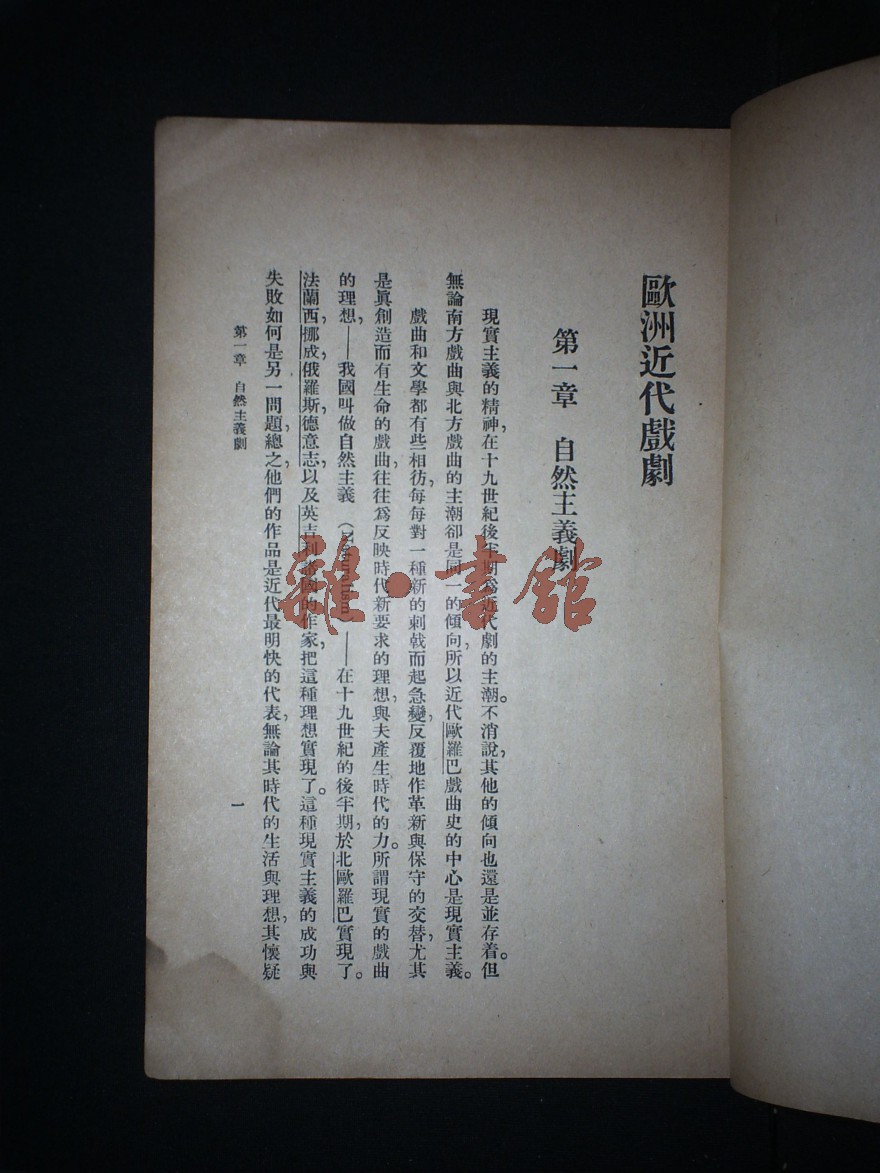 歐洲近代戲劇
第一章 自然主義劇
現實主義的精神,在十九世紀後半期爲近代劇的主潮。不消說,其他的傾向也還是並存着。但
無論南方戲曲與北方戲曲的主潮卻是同一的傾向,所以近代歐羅巴戲曲史的中心是現實主義。
戲曲和文學都有些相彷,每每對一種新的刺戟而起急變,反覆地作革新與保守的交替,尤其
是眞創造而有生命的戲曲,往往爲反映時代新要求的理想,與夫產生時代的力。所謂現實的戲曲
的理想,——我國叫做自然主義 (Naturalism) ——在十九世紀的後半期,於北歐羅巴實現了。
法蘭西,挪威,俄羅斯,德意志,以及英吉利諸國的作家,把這種理想實現了。這種現實主義的成功與
失敗如何是另一問題,總之,他們的作品是近代最明快的代表,無論其時代的生活與理想,其懷疑
第一章 自然主義劇
一
雜·書館